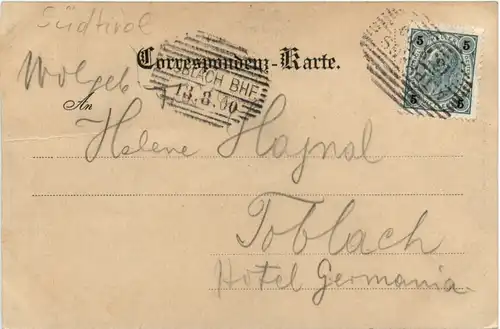 Südtirol
Correspondenz-Karte.
TOBLACH BHF.
13.8.00
5 5
5 5
Wolgeb.
An
Helene Hajnal
Toblach
Hotel Germania